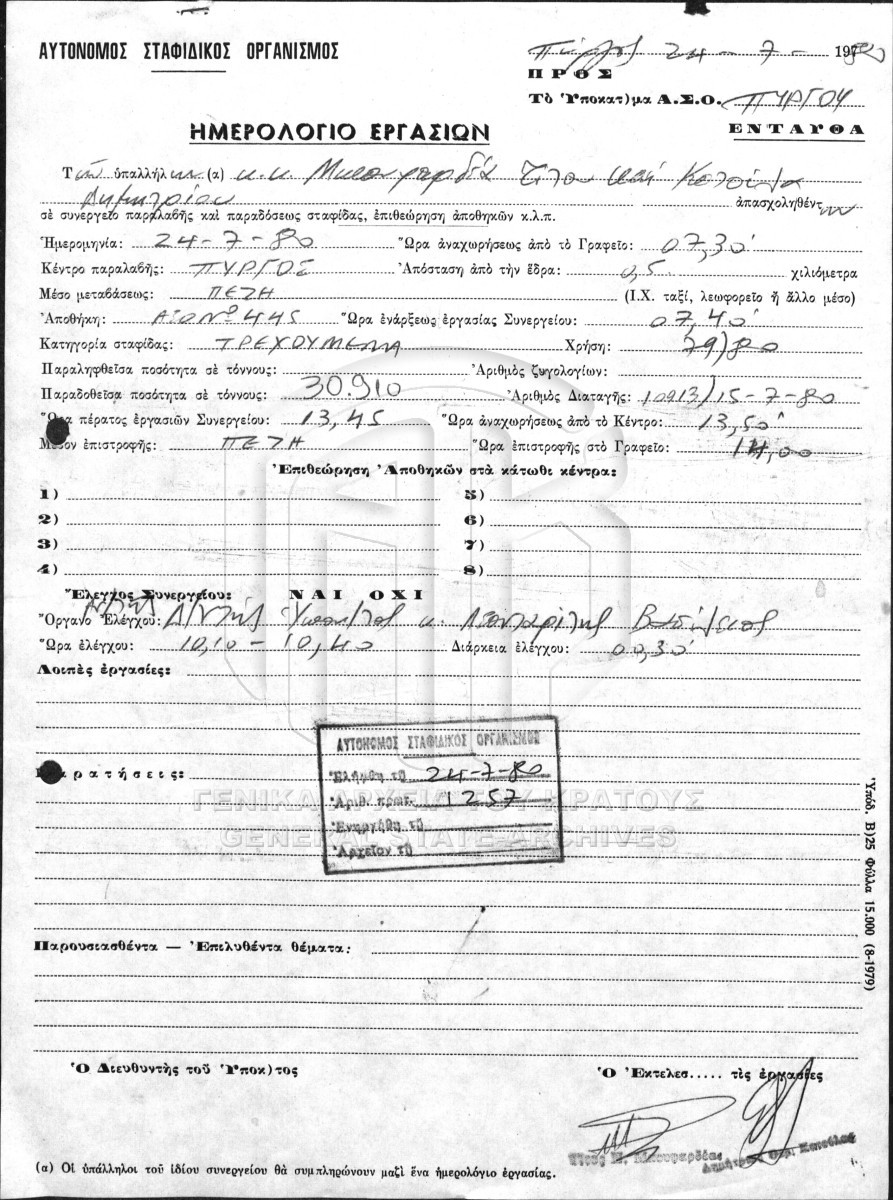 ΑΥΤΟΝΟΜΟΣ ΣΤΑΦΙΔΙΚΟΣ ΟΡΓΑΝΙΣΜΟΣ
Πύργος 24-7-1980
ΠΡΟΣ
Τὸ Ὑποκατ)μα Α.Σ.Ο. ΠΥΡΓΟΥ
ΕΝΤΑΥΘΑ
ΗΜΕΡΟΛΟΓΙΟ ΕΡΓΑΣΙΩΝ
Τῶν ὑπαλλήλων (α) κ.κ. Τίτου καί
Δημητρίου ἀπασχοληθέντων
σὲ συνεργεῖο παραλαβῆς καὶ παραδόσεως σταφίδας, ἐπιθεώρηση ἀποθηκῶν κ.λ.π.
Ἡμερομηνία: 24-7-80 Ὥρα ἀναχωρήσεως ἀπὸ τὸ Γραφεῖο: 07,30'
Κέντρο παραλαβῆς: ΠΥΡΓΟΣ Ἀπόσταση ἀπὸ τὴν ἕδρα: 0,5 χιλιόμετρα
Μέσο μεταβάσεως: ΠΕΖΗ (Ι.Χ. ταξί, λεωφορεῖο ἤ ἄλλο μέσο)
Ἀποθήκη: ΑΣΟ Νο 445 Ὥρα ἐνάρξεως ἐργασίας Συνεργείου: 07,40'
Κατηγορία σταφίδας: ΤΡΕΧΟΥΜΕΝΑ Χρήση: 79/80
Παραληφθεῖσα ποσότητα σὲ τόννους: Ἀριθμὸς ζυγολογίων:
Παραδοθεῖσα ποσότητα σὲ τόννους: 30.910 Ἀριθμὸς Διαταγῆς: 10913/15-7-80
Ὥρα πέρατος ἐργασιῶν Συνεργείου: 13,45 Ὥρα ἀναχωρήσεως ἀπὸ τὸ Κέντρο: 13,50'
Μέσον ἐπιστροφῆς: ΠΕΖΗ Ὥρα ἐπιστροφῆς στὸ Γραφεῖο: 14,00
Ἐπιθεώρηση Ἀποθηκῶν στὰ κάτωθι κέντρα:
1) 5)
2) 6)
3) 7)
4) 8)
Ἔλεγχος Συνεργείου: ΝΑΙ ΟΧΙ
Ὄργανο Ἐλέγχου: Δ/ντής Ὑποκ/τος κ.
Ὥρα ἐλέγχου: 10,10 - 10,40 Διάρκεια ἐλέγχου: 00,30'
Λοιπὲς ἐργασίες:
ΑΥΤΟΝΟΜΟΣ ΣΤΑΦΙΔΙΚΟΣ ΟΡΓΑΝΙΣΜΟΣ
Παρατήσεις:
Ἐλήφθη τῇ 24-7-80
Ἀριθ. πρωτ. 1257
Ἐνηργήθη τῇ
Ἀρχεῖον τῇ
ΓΕΝΙΚΑ ΑΡΧΕΙΑ ΤΟΥ ΚΡΑΤΟΥΣ
GENERAL STATE ARCHIVES
Ὑπόδ. Β)25 Φύλλα 15.000 (8-1979)
Παρουσιασθέντα — Ἐπιλυθέντα θέματα:
Ὁ Διευθυντὴς τοῦ Ὑποκ)τος Ὁ Ἐκτελεσ..... τὶς ἐργασίες
(α) Οἱ ὑπάλληλοι τοῦ ἰδίου συνεργείου θὰ συμπληρώνουν μαζὶ ἕνα ἡμερολόγιο ἐργασίας.